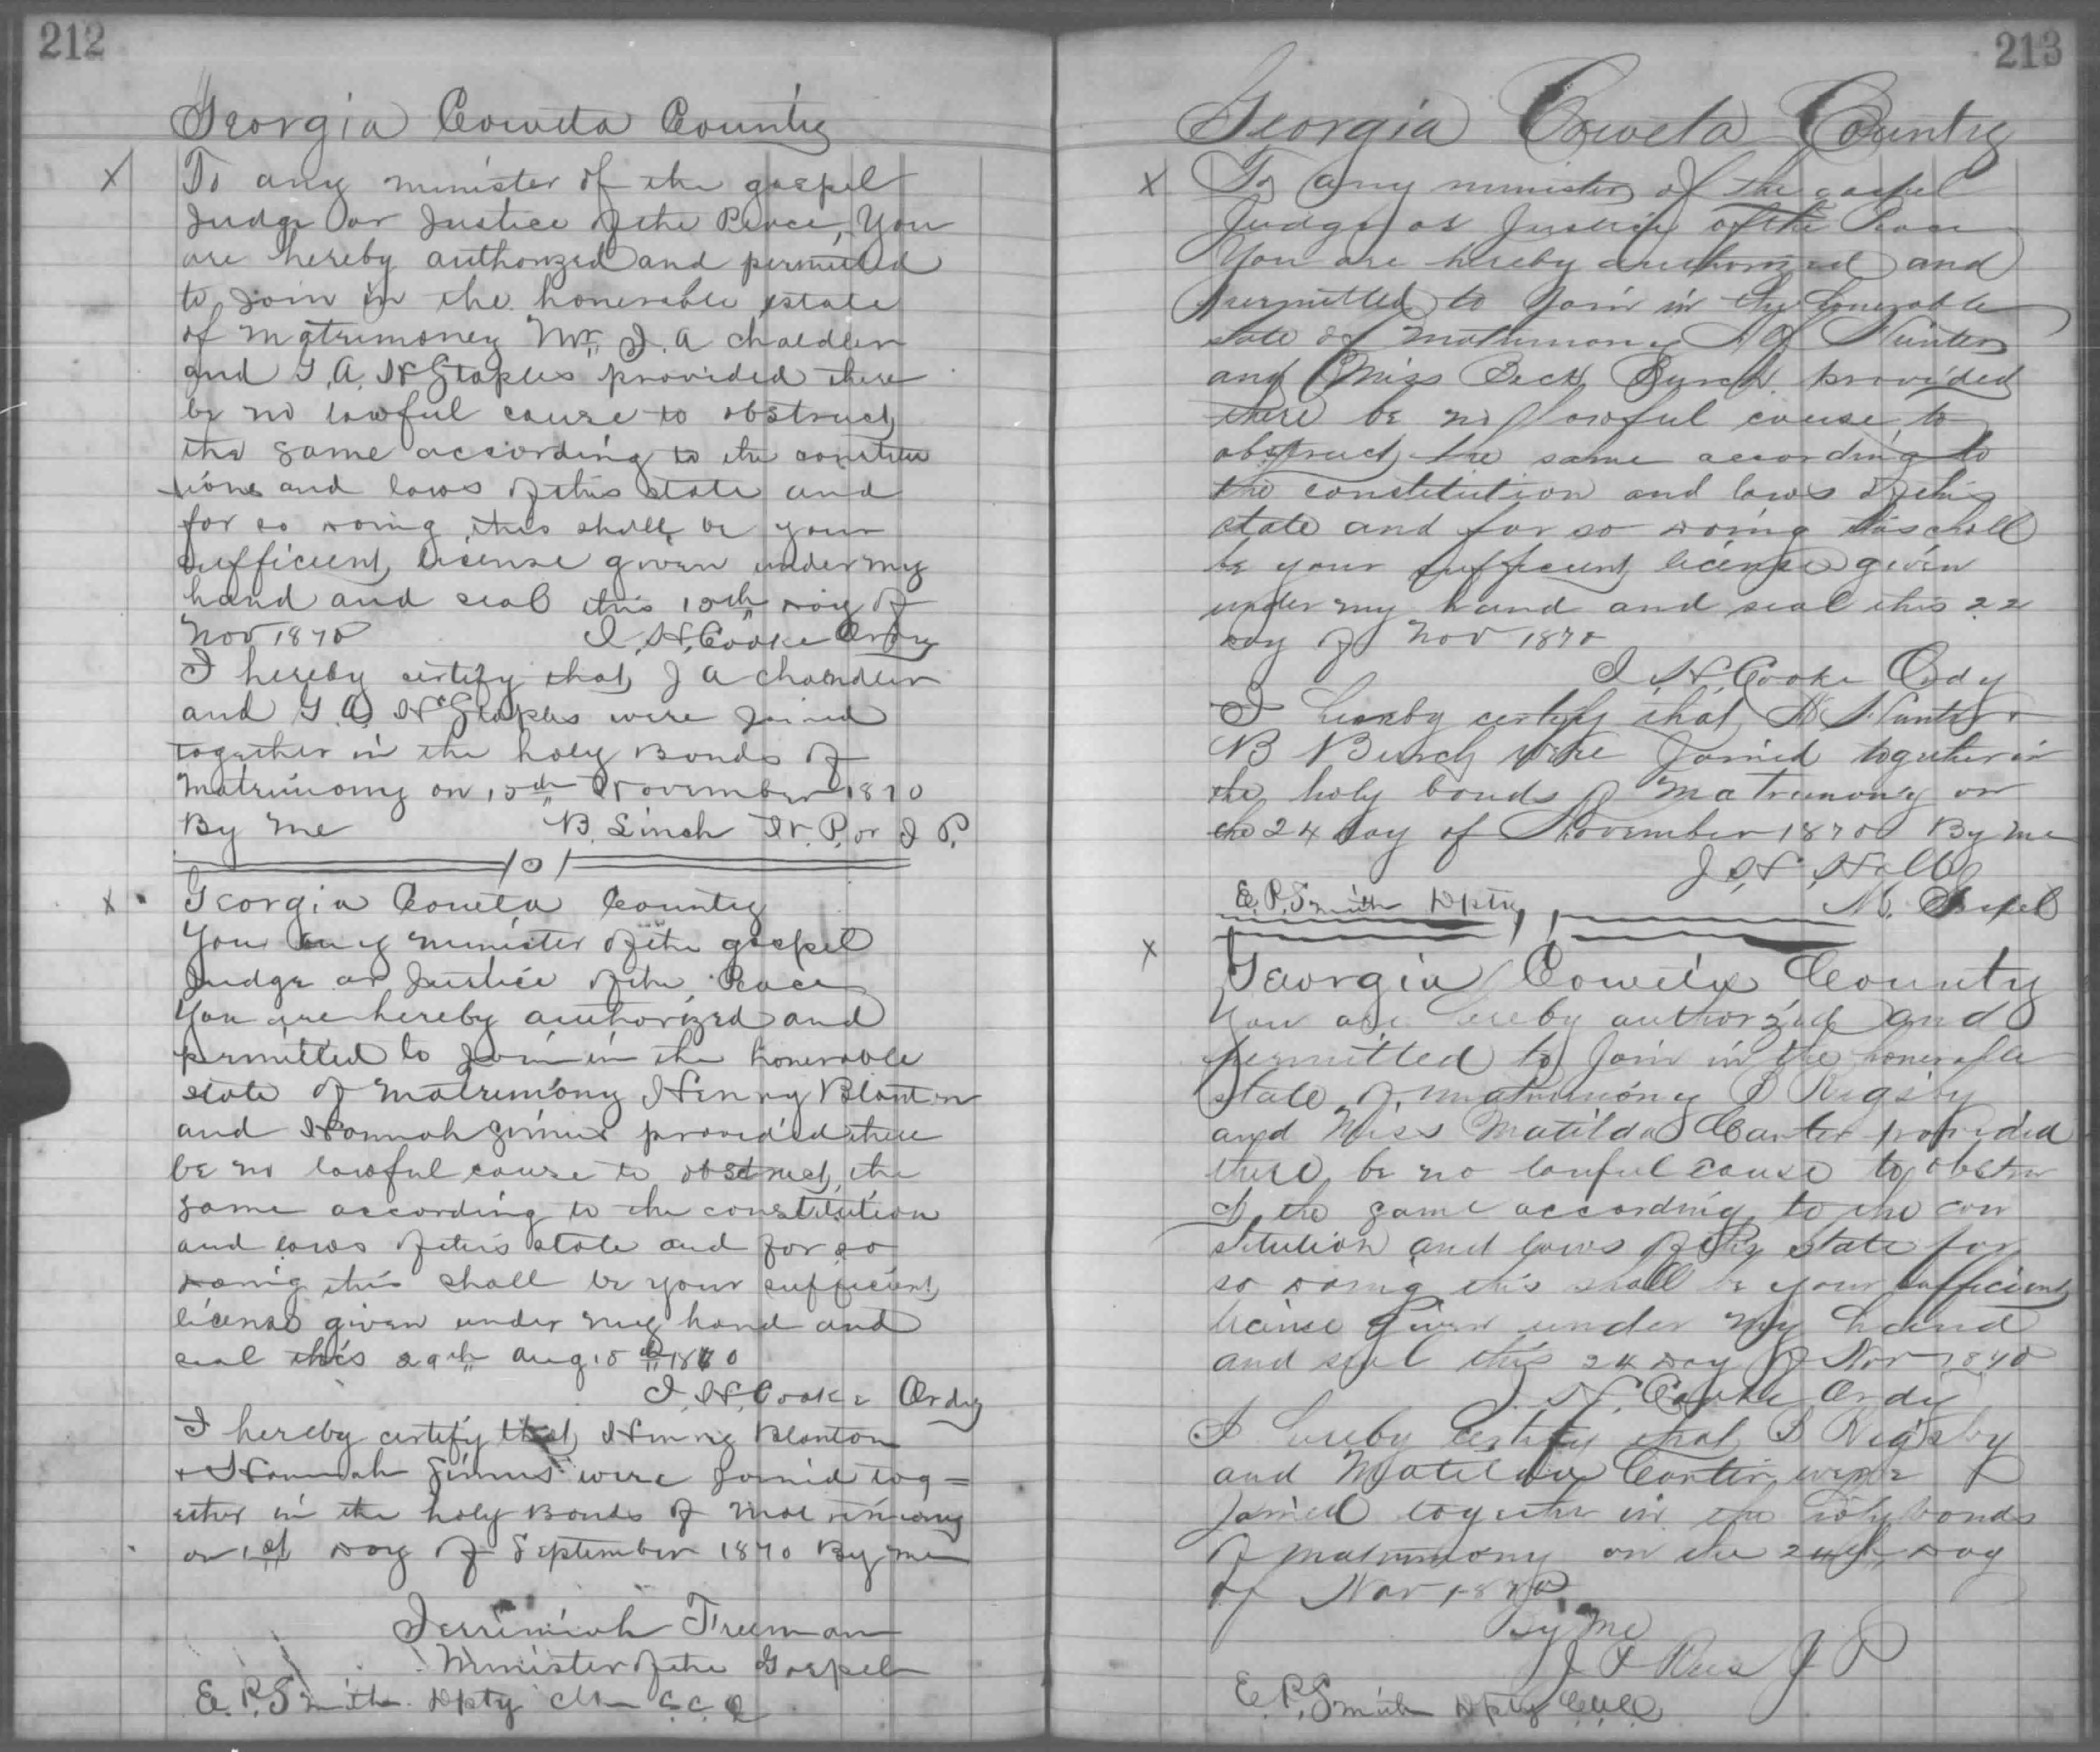 212
Georgia Coweta County
X To any minister of the gospel
Judge or Justice of the Peace, You
are hereby authorized and permitted
to join in the honerable state
of matrimoney Mr. J. A Chaedler
and G. A. H Staples provided there
be no lawful cause to obstruct
the same according to the constitu
tions and laws of this state and
for so doing this shall be your
sufficient license given under my
hand and seal this 15th day of
Nov 1870 J. H. Cooke Ordy
I hereby certify that J A Chaendler
and G. A. H Staples were joined
together in the holy Bonds of
Matrimony on 15th November 1870
By me B. Linch N. P. or J P.
X Georgia Coweta County
You any minister of the gospel
Judge or Justice of the Peace
You are hereby authorized and
prmitted to join in the honerable
state of matrimony Henry Blanton
and Hannah provided there
be no lawful cause to obstruct the
same according to the constitution
and laws of this state and for so
doing this shall be your sufficient
license given under my hand and
seal this 29th Aug 15th 1870
J. H. Cooke Ordy
I hereby certify that Henry Blanton
+ Hannah were joined tog=
ether in the holy Bonds of Matrimony
on 1st Day of September 1870 By me
Jerrimiah Freeman
Minister of the Gospel
E. P. Smith Dpty Clk C. C. O
213
Georgia Coweta County
X To any minister of the gospel
Judge or Justice of the Peace
You are hereby authorized and
permitted to join in the honerable
state of matrimony Hunter
and Miss Beck Burch provided
there be no lawful cause to
obstruct the same according to
the constitution and laws of this
state and for so doing this shall
be your sufficient license given
under my hand and seal this 22
day of Nov 1870
J. H. Cooke Ordy
I hereby certify that Hunter +
B Burch were joined together in
the holy bonds of Matrimony on
the 24 day of November 1870 By me
J. H. Hall
E. P. Smith Dpty M. Gospel
X Georgia Coweta County
You are hereby authorized and
permitted to join in the honerable
state of matrimony Rigsby
and Miss Matilda Carter provided
there be no lawful cause to obstru
ct the same according to the con
stitution and laws of this state for
so doing this shall be your sufficient
license Given under my hand
and seal this 24 day of Nov 1870
J. H. Cooke Ordy
I hereby certify that Rigsby
and Matilda Carter were
joined together in the holy bonds
of matrimony on the 24th day
of Nov 1870
By Me
J P
E. P. Smith Dpty